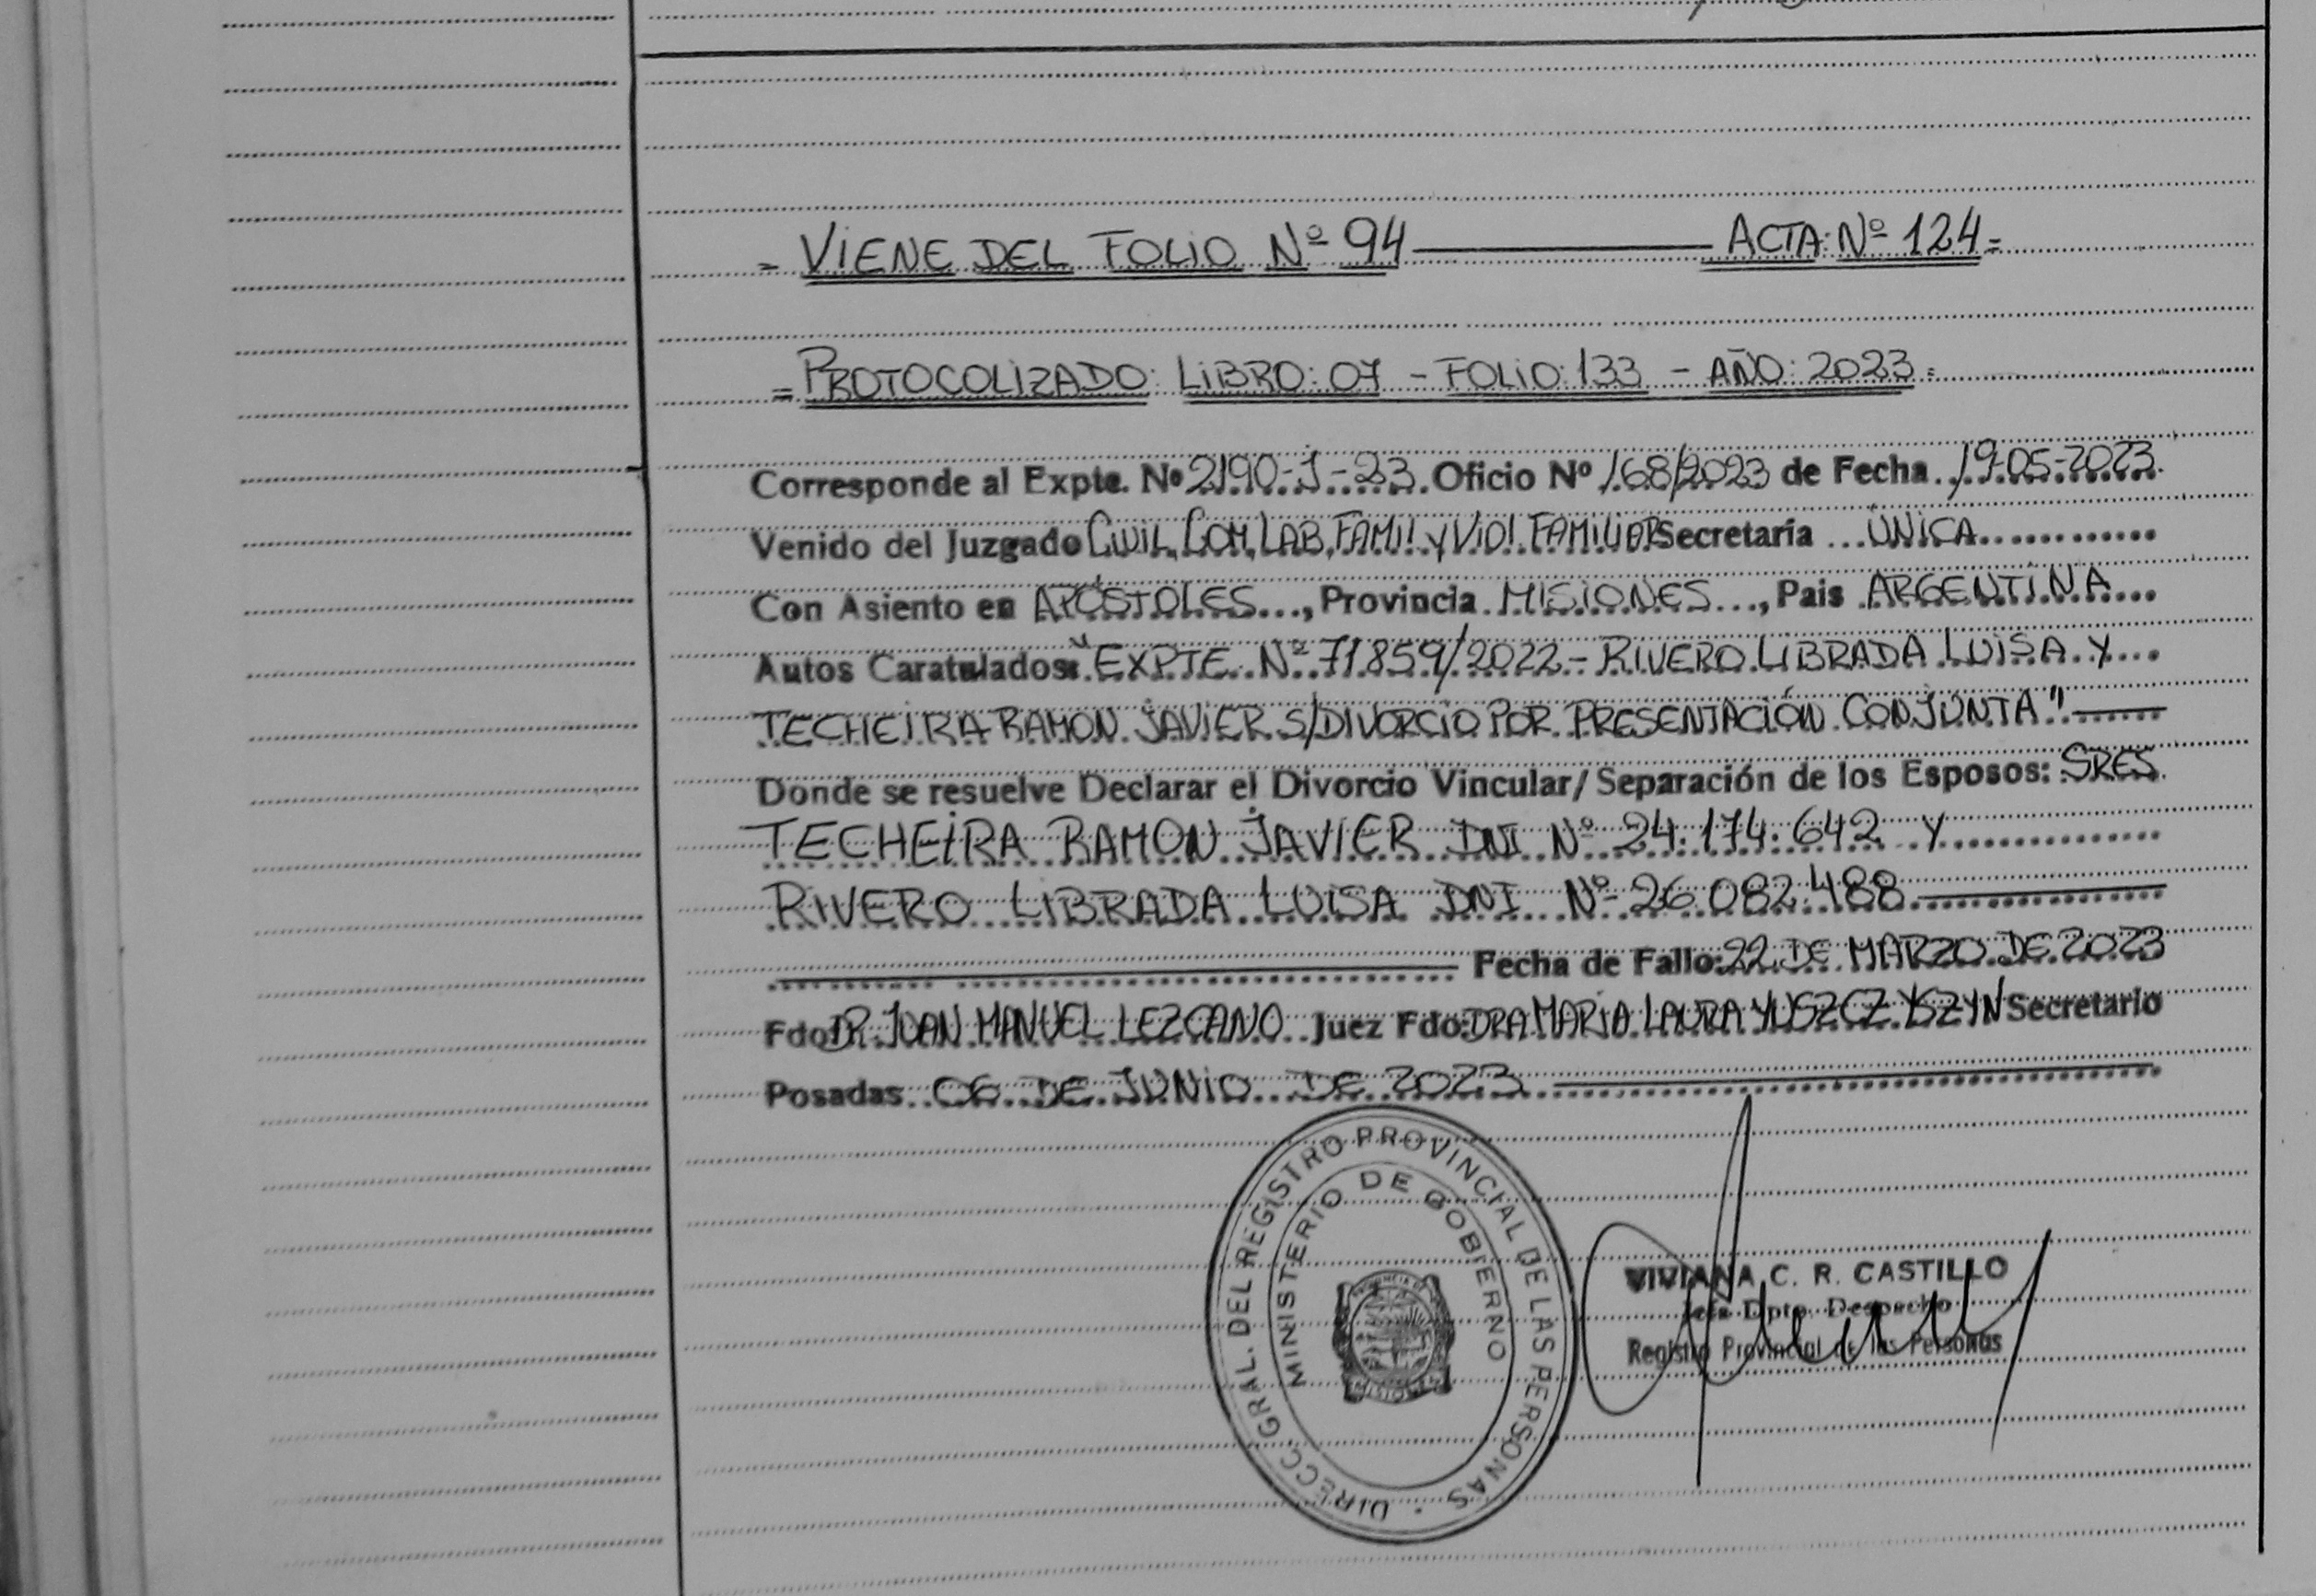 = VIENE DEL FOLIO Nº 94 ——— ACTA: Nº 124 =
= PROTOCOLIZADO: LIBRO: 07 - FOLIO: 133 - AÑO: 2023 =
Corresponde al Expte. Nº 2190-J-23. Oficio Nº 168/2023 de Fecha 19-05-2023.
Venido del Juzgado CIVIL, COM, LAB, FAMIL y VIOL. FAMILIAR Secretaría ... ÚNICA............
Con Asiento en APÓSTOLES..., Provincia MISIONES..., Pais ARGENTINA...
Autos Caratulados: "EXPTE. Nº 71859/2022 - RIVERO LIBRADA LUISA Y...
TECHEIRA RAMON JAVIER S/DIVORCIO POR PRESENTACIÓN CONJUNTA" ———
Donde se resuelve Declarar el Divorcio Vincular/ Separación de los Esposos: SRES.
TECHEIRA RAMON JAVIER DNI Nº 24.174.642 Y
RIVERO LIBRADA LUISA DNI Nº 26.082.488 ———
——— Fecha de Fallo: 22 DE MARZO DE 2023
Fdo. DR. JUAN MANUEL LEZCANO Juez Fdo: DRA MARIA LAURA YUSZCZYSZYN Secretario
Posadas 06 DE JUNIO DE 2023 ———
DIRECC. GRAL. DEL REGISTRO PROVINCIAL DE LAS PERSONAS
MINISTERIO DE GOBIERNO
PROVINCIA DE
MISIONES
VIVIANA C. R. CASTILLO
Jefa Dpto. Despacho
Registro Provincial de las Personas